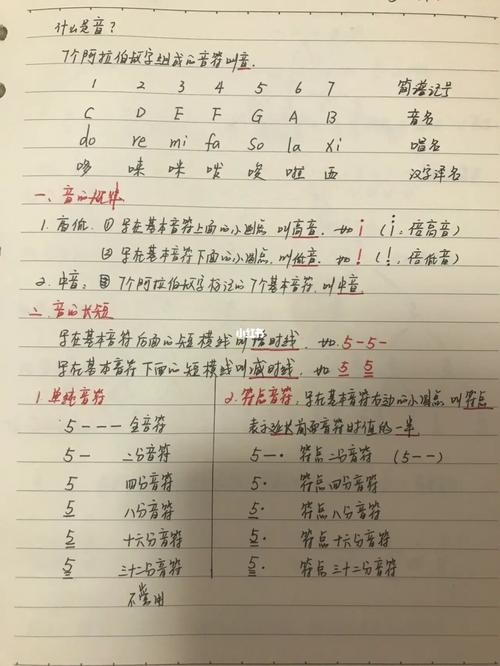 什么是音?
7个阿拉伯数字组成的音符叫音.
1 2 3 4 5 6 7 简谱记号
C D E F G A B 音名
do re mi fa so la xi 唱名
哆 唻 咪 发 唆 啦 西 汉字译名
一、音的
1. 高低. ① 写在基本音符上面的小圆点 叫高音. 如 i (i: 倍高音)
② 写在基本音符下面的小圆点, 叫低音. 如 ! (!, 倍低音)
2. 中音: 7个阿拉伯数字标记的7个基本音符. 叫中音.
二. 音的长短
写在基本音符后面的短横线叫增时线. 如 5-5-
写在基本音符下面的短横线叫减时线. 如 5 5
1. 单纯音符
5 - - - 全音符
5 - 二分音符
5 四分音符
5 八分音符
5 十六分音符
5 三十二分音符
不常用
2. 符点音符, 写在基本音符右边的小圆点 叫符点
表示延长前面音符时值的一半
5 - · 符点二分音符 (5 - -)
5· 符点四分音符
5· 符点八分音符
5· 符点十六分音符
5· 符点三十二分音符
小红书